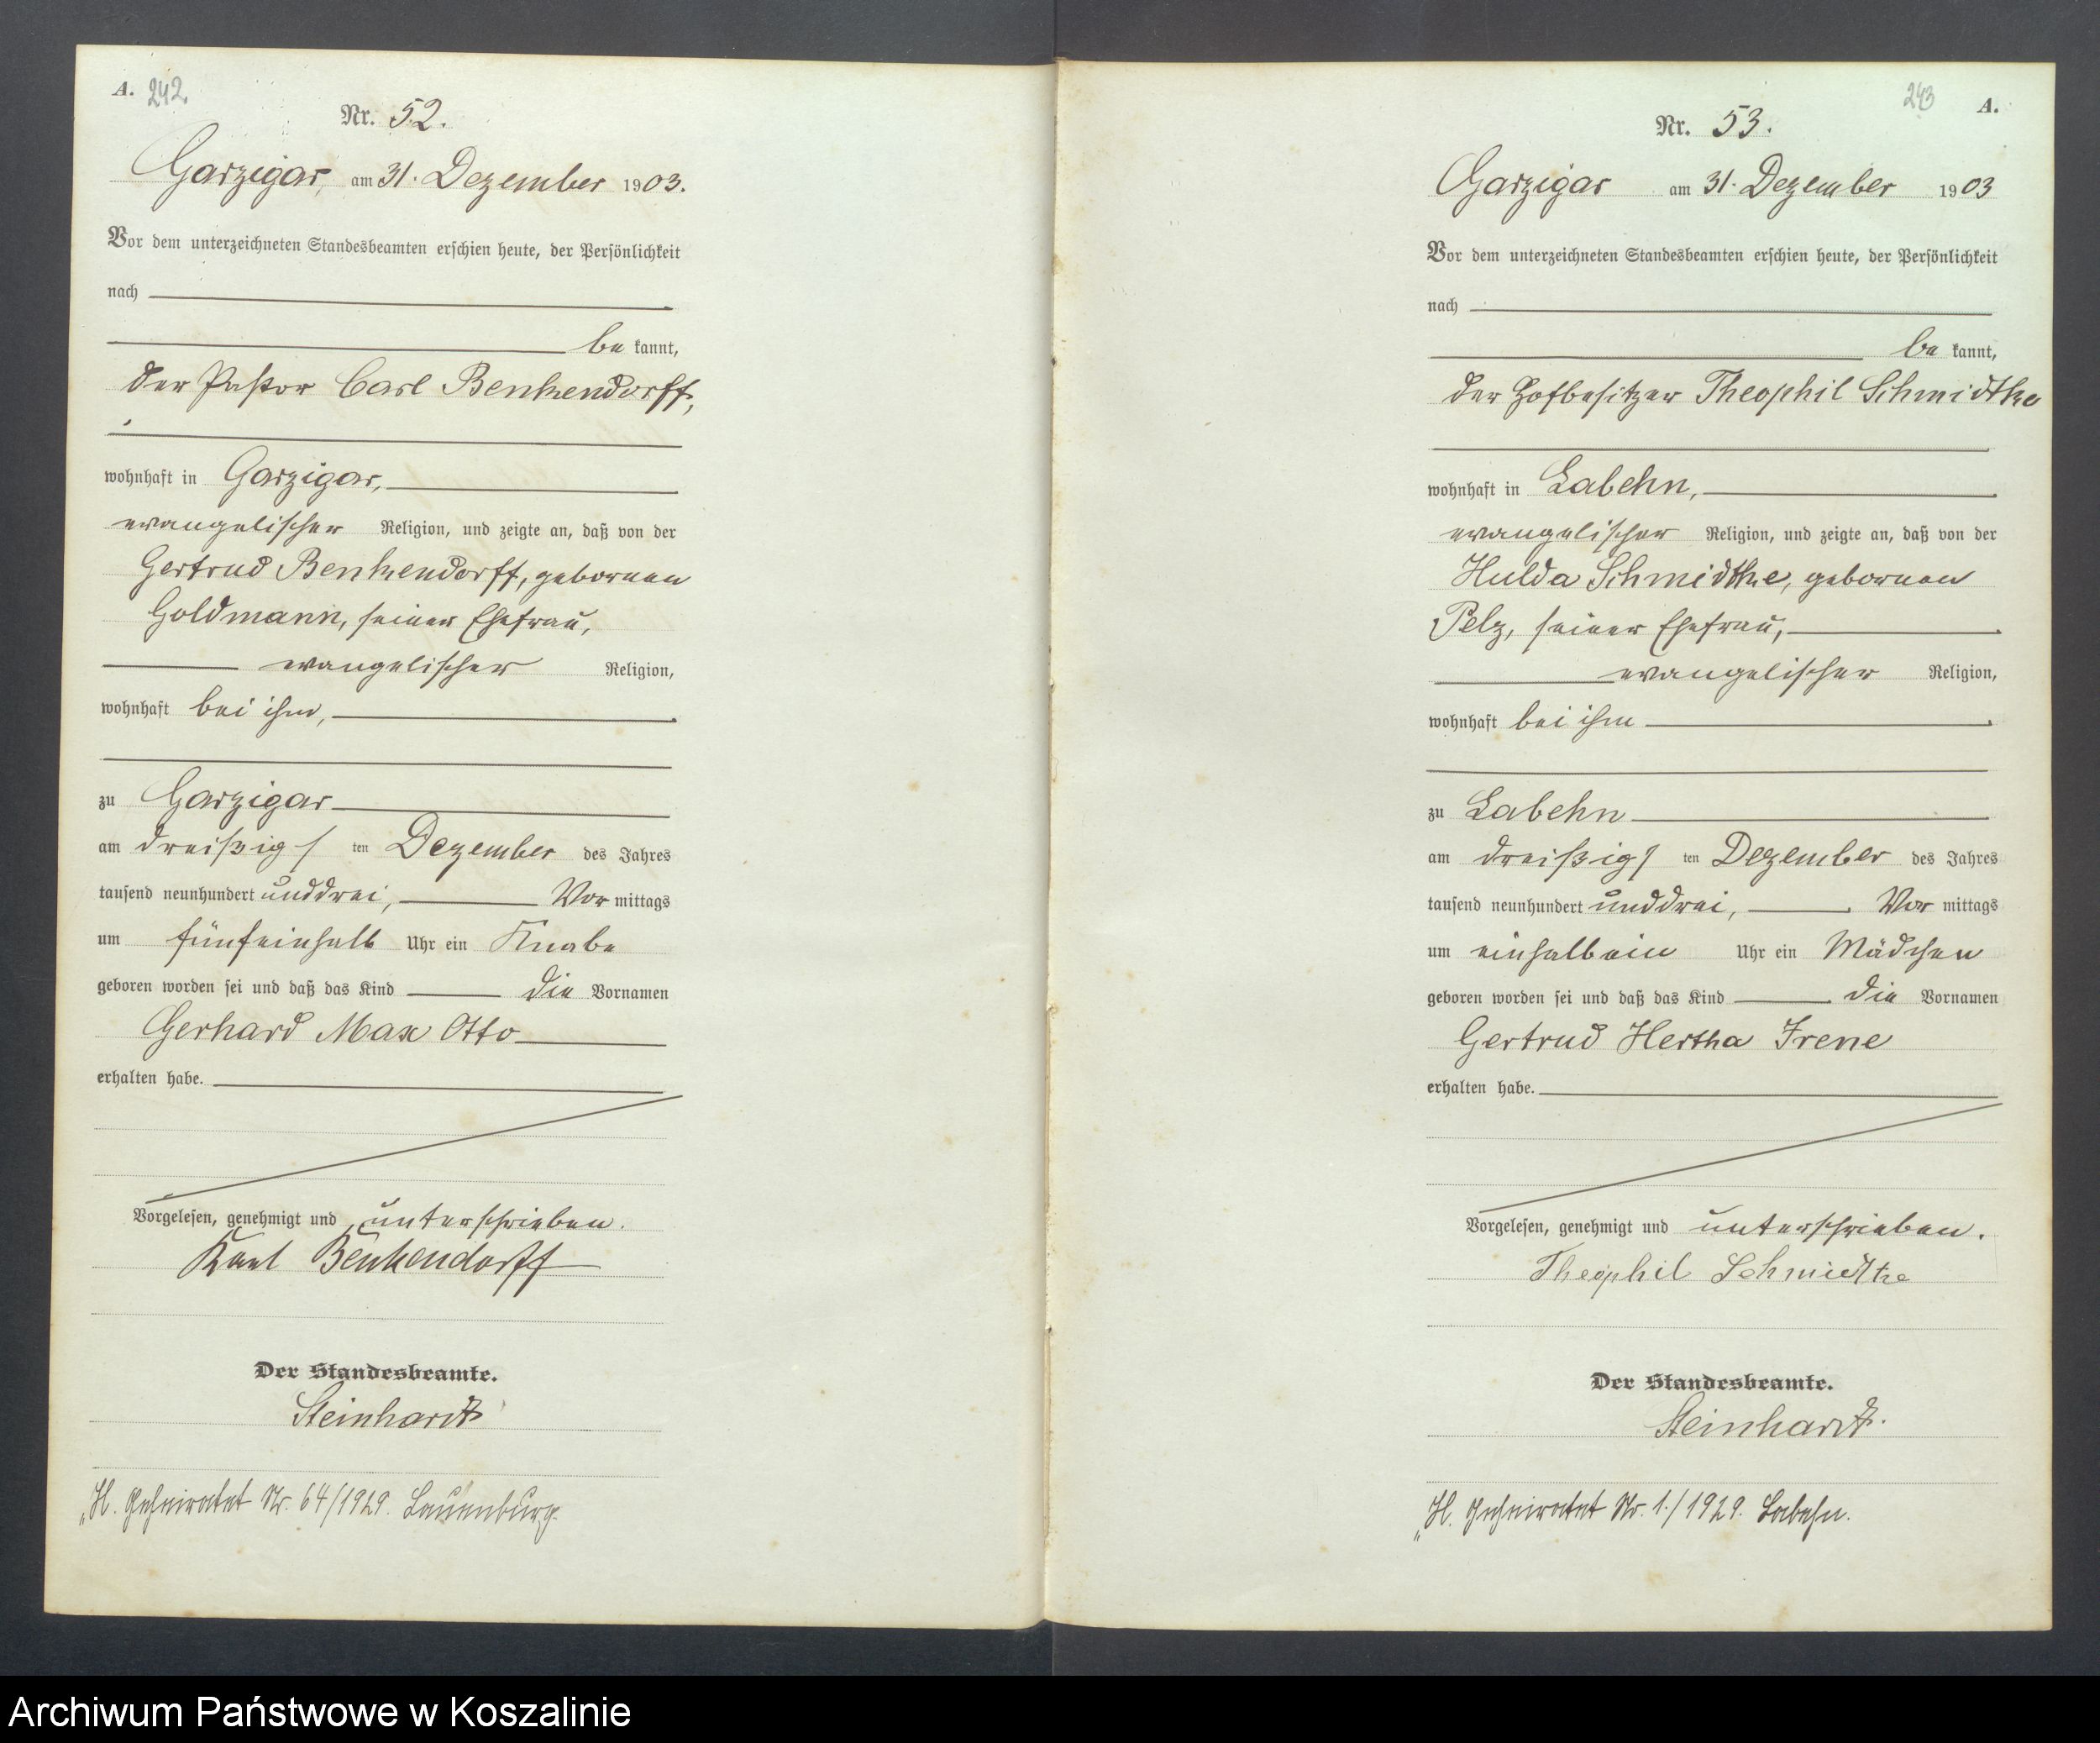 A. 242
Nr. 52.
Garzigar, am 31. Dezember 1903.
Vor dem unterzeichneten Standesbeamten erschien heute, der Persönlichkeit
nach
be kannt,
der Pastor Carl Benkendorff,
wohnhaft in Garzigar,
evangelischer Religion, und zeigte an, daß von der
Gertrud Benkendorff, geborenen
Goldmann, seiner Ehefrau,
evangelischer Religion,
wohnhaft bei ihm,
zu Garzigar
am dreißigs ten Dezember des Jahres
tausend neunhundert unddrei, Vor mittags
um fünfeinhalb Uhr ein Knabe
geboren worden sei und daß das Kind die Vornamen
Gerhard Max Otto
erhalten habe.
Vorgelesen, genehmigt und unterschrieben.
Karl Benkendorff
Der Standesbeamte.
Steinhardt
„H. Geheiratet Nr. 64/1929. Lauenburg.
243 A.
Nr. 53.
Garzigar am 31. Dezember 1903
Vor dem unterzeichneten Standesbeamten erschien heute, der Persönlichkeit
nach
be kannt,
der Hofbesitzer Theophil Schmidtke
wohnhaft in Labehn,
evangelischer Religion, und zeigte an, daß von der
Hulda Schmidtke, geborenen
Pelz, seiner Ehefrau,
evangelischer Religion,
wohnhaft bei ihm
zu Labehn
am dreißigs ten Dezember des Jahres
tausend neunhundert unddrei, Vor mittags
um einhalbein Uhr ein Mädchen
geboren worden sei und daß das Kind die Vornamen
Gertrud Hertha Irene
erhalten habe.
Vorgelesen, genehmigt und unterschrieben.
Theophil Schmidtke
Der Standesbeamte.
Steinhardt.
„H. Geheiratet Nr. 1./1929. Labehn.
Archiwum Państwowe w Koszalinie